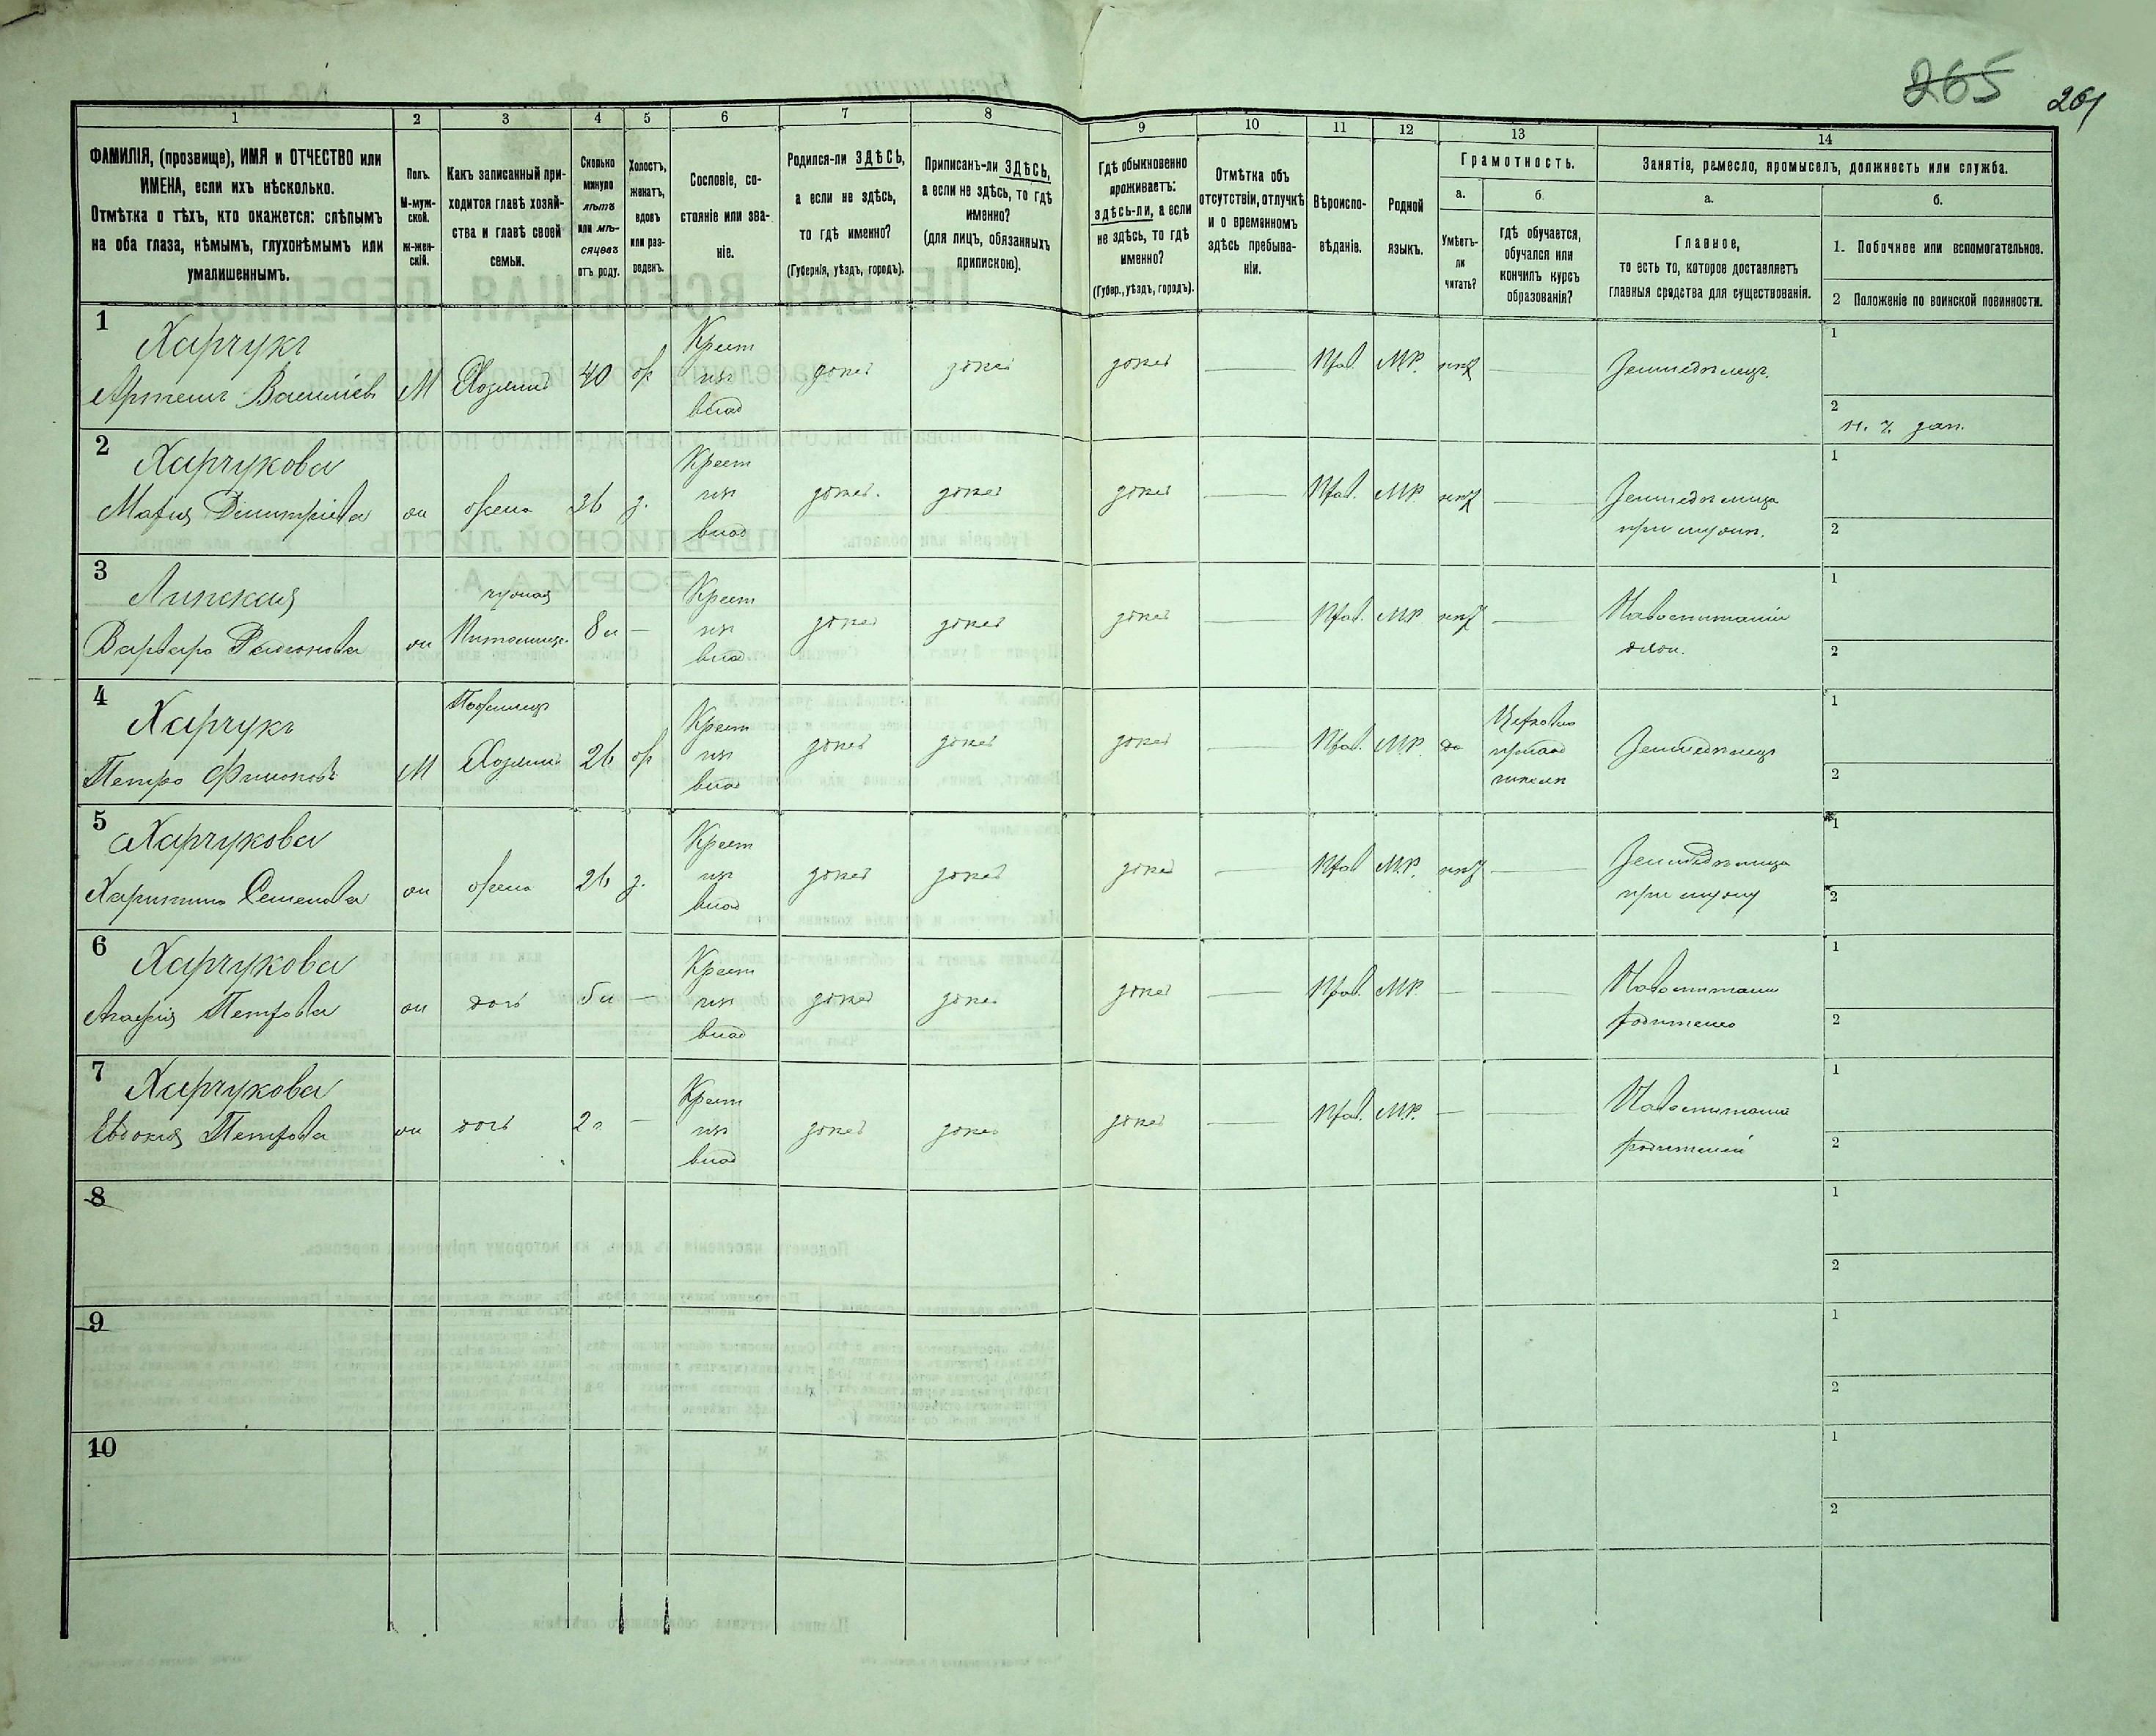 265 261
1 2 3 4 5 6 7 8 9 10 11 12 13 14
ФАМИЛІЯ, (прозвище), ИМЯ и ОТЧЕСТВО или
ИМЕНА, если ихъ нѣсколько.
Отмѣтка о тѣхъ, кто окажется: слѣпымъ
на оба глаза, нѣмымъ, глухонѣмымъ или
умалишеннымъ.
Полъ.
М-муж-
ской.
Ж-жен-
скій.
Какъ записанный при-
ходится главѣ хозяй-
ства и главѣ своей
семьи.
Сколько
минуло
лѣтъ
или мѣ-
сяцевъ
отъ роду.
Холостъ,
женатъ,
вдовъ
или раз-
веденъ.
Сословіе, со-
стояніе или зва-
ніе.
Родился-ли ЗДѢСЬ,
а если не здѣсь,
то гдѣ именно?
(Губернія, уѣздъ, городъ).
Приписанъ-ли ЗДѢСЬ,
а если не здѣсь, то гдѣ
именно?
(для лицъ, обязанныхъ
припискою).
Гдѣ обыкновенно
проживаетъ:
здѣсь-ли, а если
не здѣсь, то гдѣ
именно?
(Губер., уѣздъ, городъ).
Отмѣтка объ
отсутствіи, отлучкѣ
и о временномъ
здѣсь пребыва-
ніи.
Вѣроиспо-
вѣданіе.
Родной
языкъ.
Грамотность.
а.
Умѣетъ-
ли
читать?
б.
гдѣ обучается,
обучался или
кончилъ курсъ
образованія?
Занятія, ремесло, промыселъ, должность или служба.
а.
Главное,
то есть то, которое доставляетъ
главныя средства для существованія.
б.
1. Побочное или вспомогательное.
2 Положеніе по воинской повинности.
1
Харчукъ
Артемъ Василіевъ М Хозяинъ 40 ж
Крест
изъ
влад
здесь здесь здесь — Прав. М.Р. нѣт — Земледѣлецъ.
1
2
2
Харчукова
Марія Димитріева ж жена 36 з.
Крест
изъ
влад
здесь здесь здесь — Прав. М.Р. нѣт —
Земледѣлица
при мужѣ.
1
2
3
Липская
Варвара Родионова ж
чужая
Питомица 8 л —
Крест
изъ
влад
здесь здесь здесь — Прав. М.Р. нѣт —
На воспитаніи
1
2
4
Харчукъ
Петро М
Хозяинъ 26 ж
Крест
изъ
влад
здесь здесь здесь — Прав. М.Р. да
Церковно
приход
школѣ
Земледѣлецъ
1
2
5
Харчукова
Харитина Семенова ж жена 26 з.
Крест
изъ
влад
здесь здесь здесь — Прав М.Р. нѣт —
Земледѣлица
при мужу
1
2
6
Харчукова
Агафія Петрова ж дочь 5 л —
Крест
изъ
влад
здесь здесь здесь — Прав. М.Р. — —
На воспитани
1
2
7
Харчукова
Евдокия Петрова ж дочь 2 г. —
Крест
изъ
влад
здесь здесь здесь — Прав. М.Р. — —
На воспитании
родителей
1
2
8
1
2
9
1
2
10
1
2